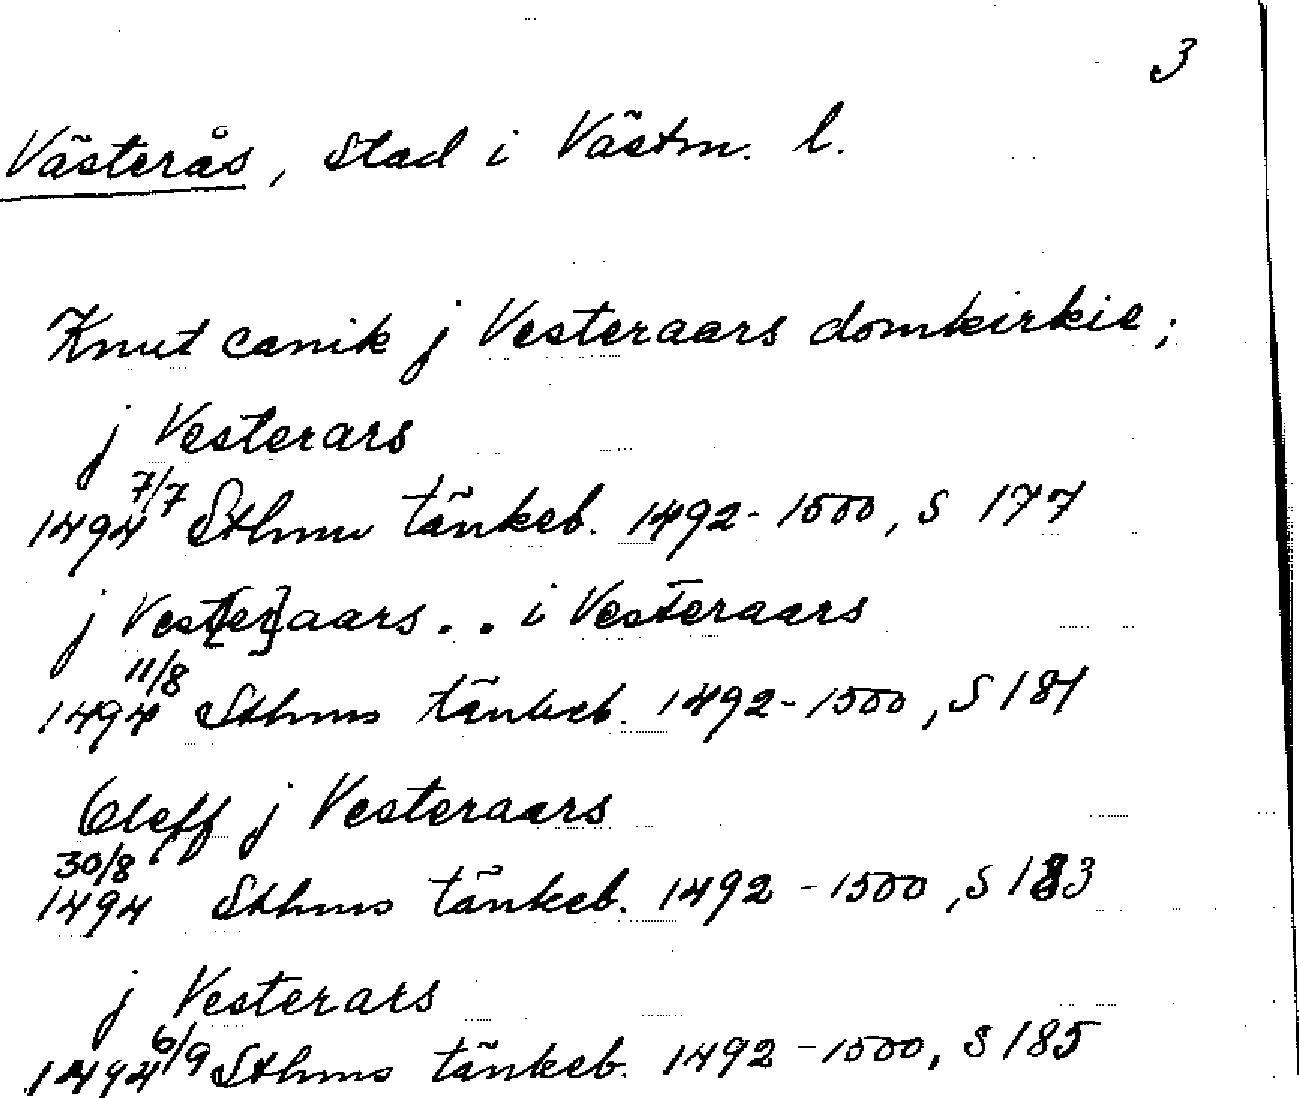 3
Västerås, stad i Västm. l.
Knut canik j Vesteraars domkirkie;
j Vesterars
1494 7/7 Sthms tänkeb. 1492-1500, S 177
j Vest[er]aars.. i Vesteraars
1494 11/8 Sthms tänkeb. 1492-1500, S 181
Oleff j Vesteraars
1494 30/8 Sthms tänkeb. 1492-1500, S 183
j Vesterars
1494 6/9 Sthms tänkeb. 1492-1500, S 185